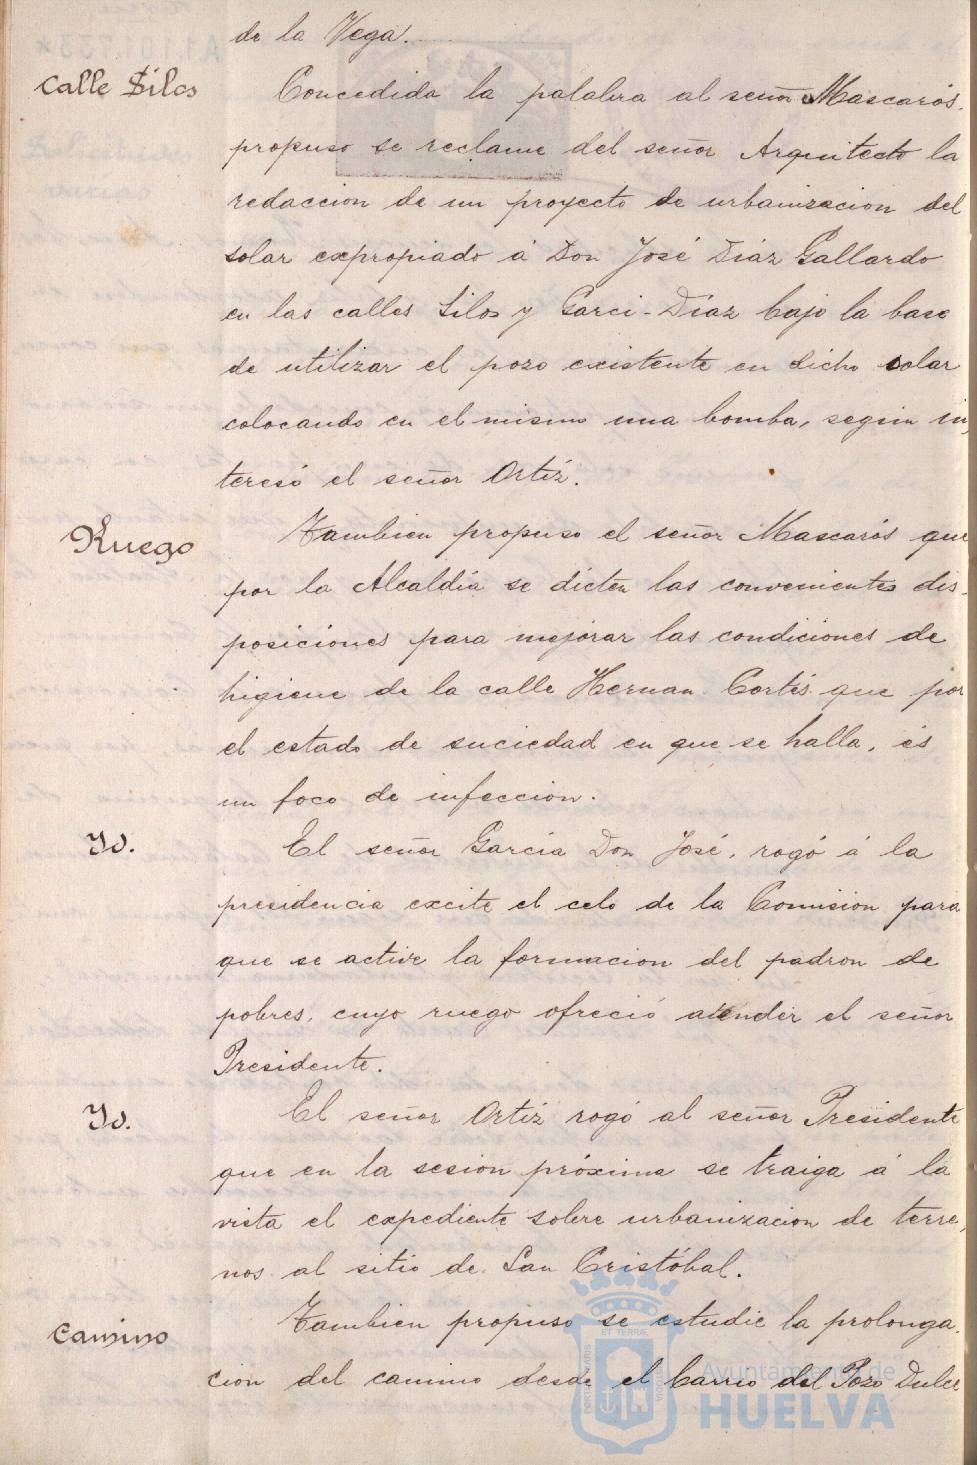 de la Vega.
Calle Silos
Concedida la palabra al señor Mascarós.
propuso se reclame del señor Arquitecto la
redaccion de un proyecto de urbanizacion del
solar expropiado á Don José Diáz Gallardo
en las calles Silos y Garci-Díaz bajo la base
de utilizar el pozo existente en dicho solar
colocando en el mismo una bomba, segun in,
teresó el señor Ortíz.
Ruego
Tambien propuso el señor Mascarós que
por la Alcaldía se dicten las convenientes dis-
posiciones para mejorar las condiciones de
higiene de la calle Hernan Cortés que por
el estado de suciedad en que se halla, és
un foco de infeccion.
Yd.
El señor García Don José, rogó á la
presidencia excite el celo de la Comision para
que se active la formacion del padron de
pobres, cuyo ruego ofreció atender el señor
Presidente.
Yd.
El señor Ortíz rogó al señor Presidente
que en la sesion próxima se traiga á la
vista el expediente sobre urbanizacion de terre,
nos al sitio de San Cristóbal.
Camino
Tambien propuso se estudie la prolonga-
cion del camino desde el barrio del Pozo Dulce
Ayuntamiento de
HUELVA